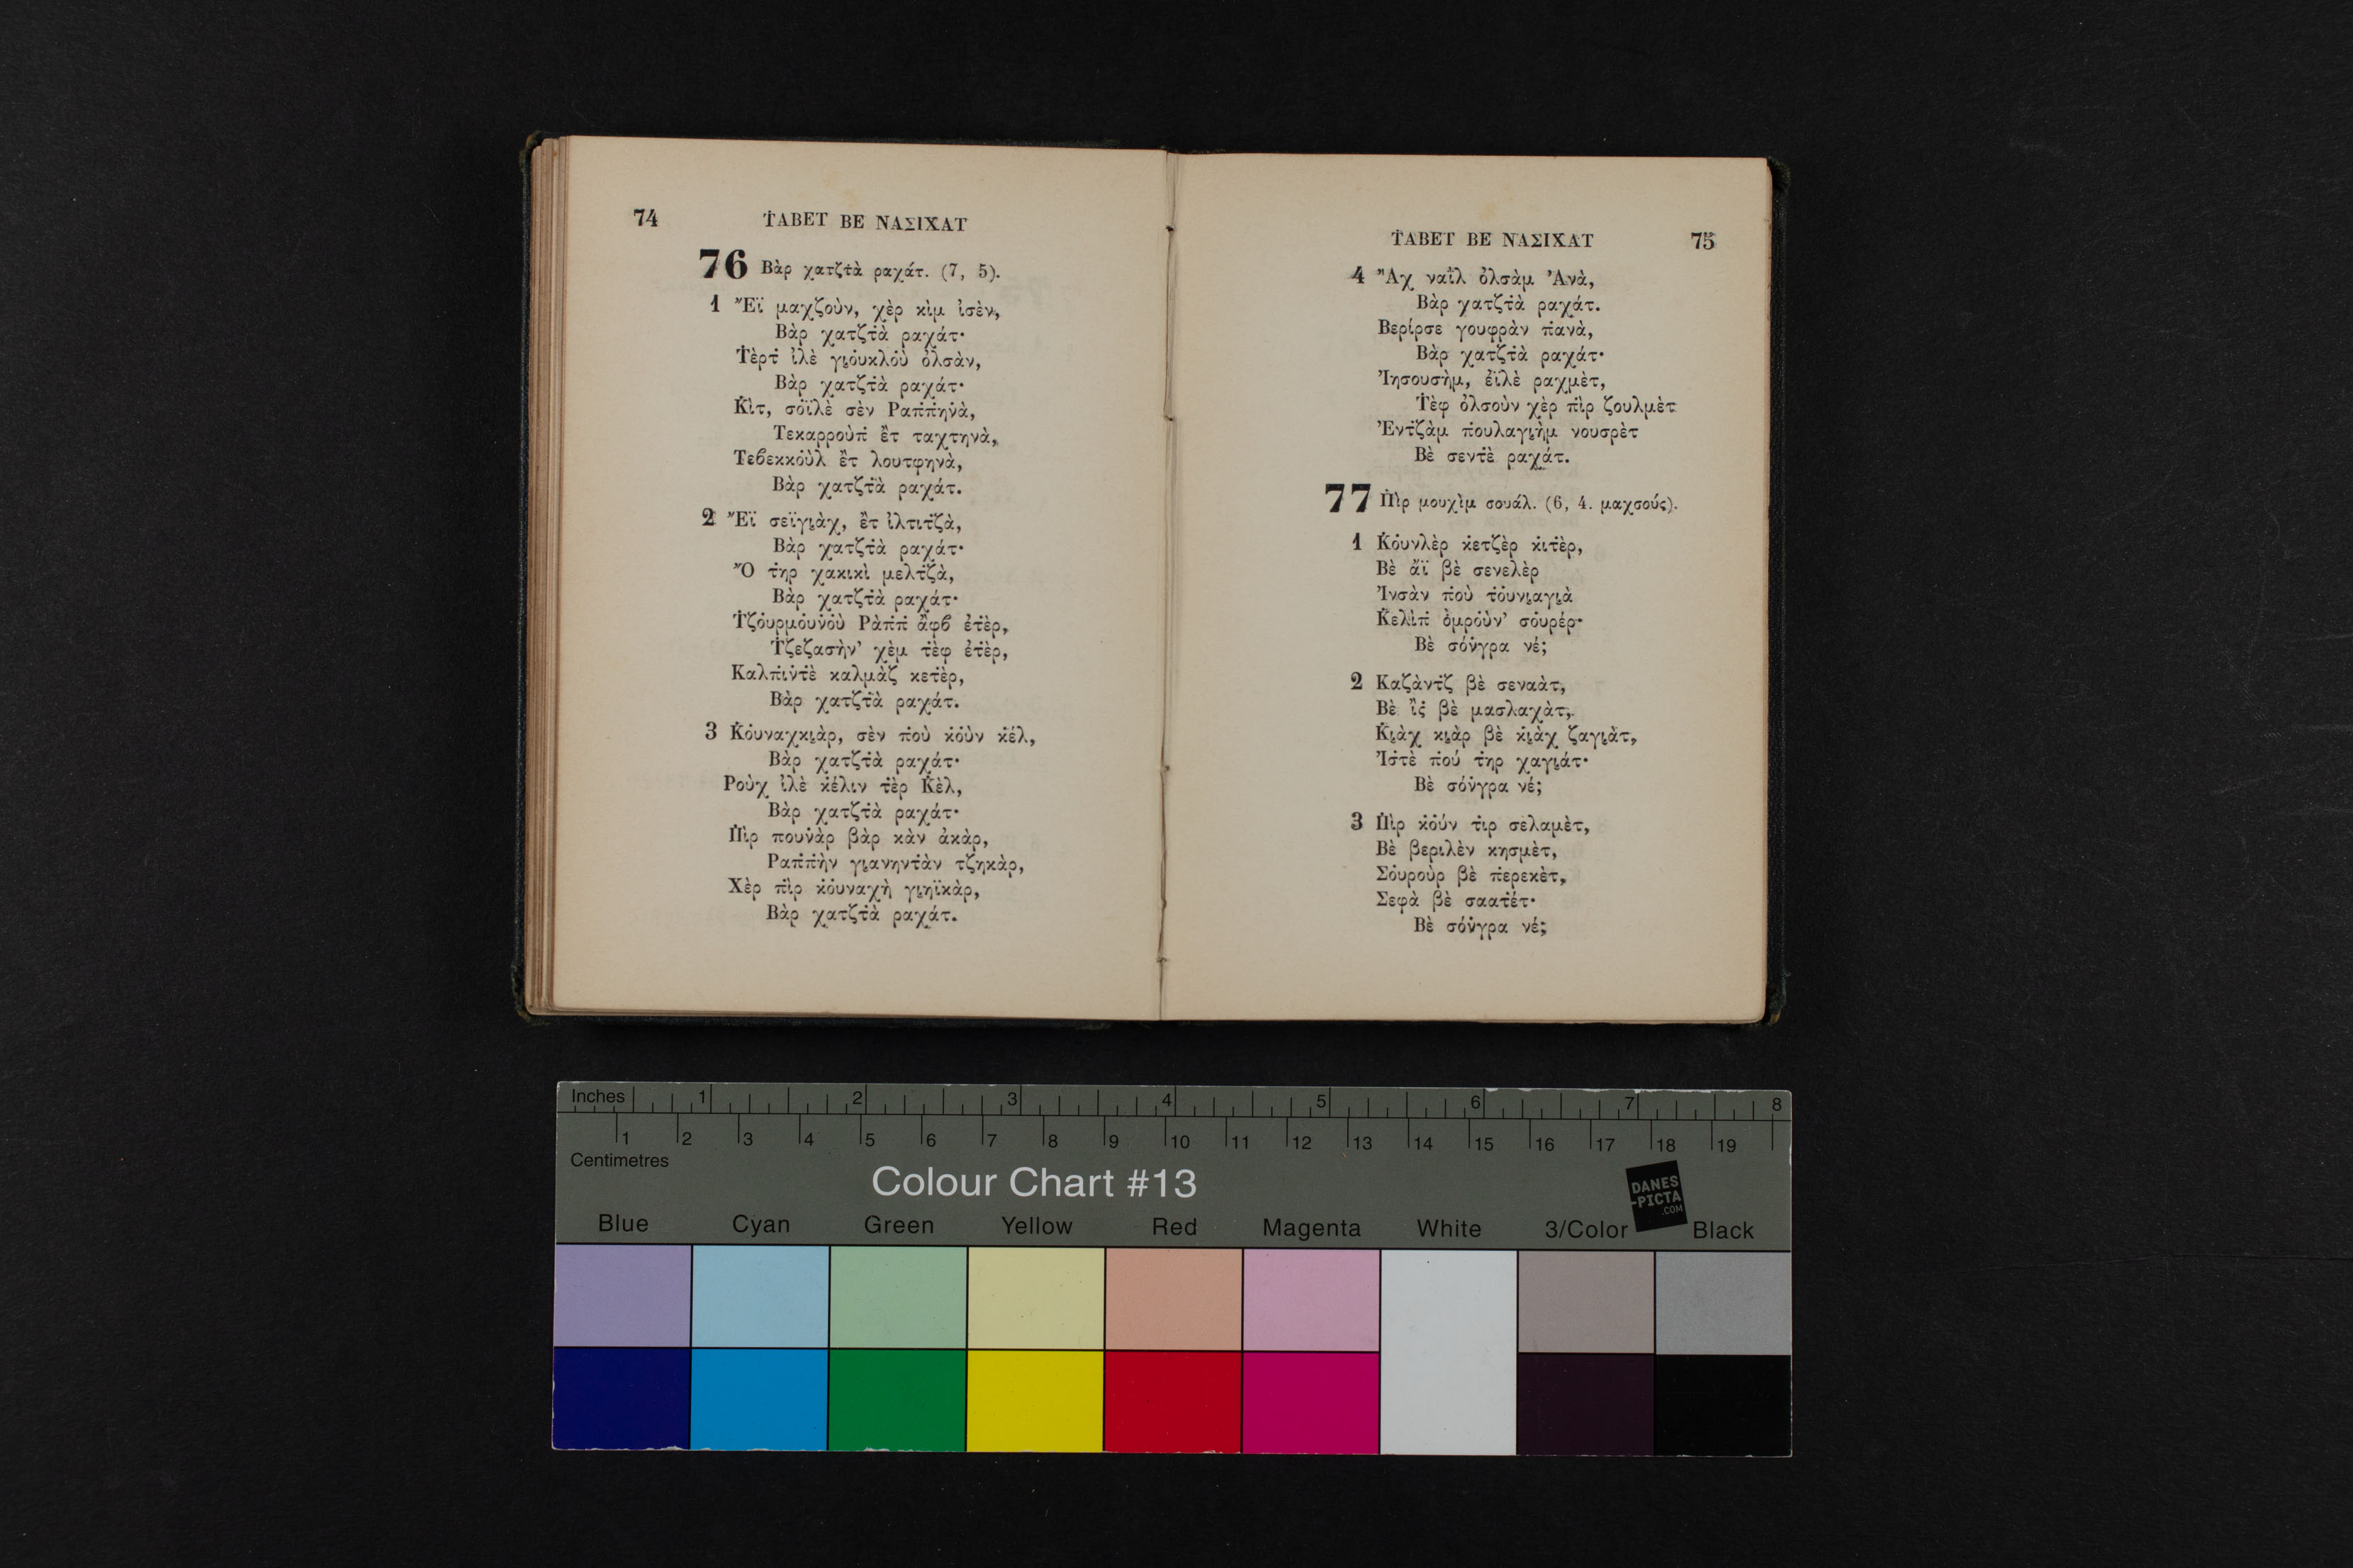 74 ṪΑΒΕΤ ΒΕ ΝΑΣΙΧΑΤ
76 Βὰρ χατζτ̇ὰ ραχάτ. (7, 5).
1 Ἔϊ μαχζοὺν, χὲρ κὶμ ἰσὲν,
Βὰρ χατζτ̇ὰ ραχάτ·
Τ̇ὲρτ̇ ἰλὲ γι̲ο̇υκλο̇ὺ ὀλσὰν,
Βὰρ χατζτ̇ὰ ραχάτ·
Κ̇ὶτ, σο̇ϊλὲ σὲν Ραπ̇π̇ην̇ὰ,
Τεκαρροὺπ̇ ἒτ ταχτηνὰ,
Τεϐεκκο̇ὺλ ἒτ λουτφηνὰ,
Βὰρ χατζτ̇ὰ ραχάτ.
2 Ἔϊ σεϊγι̲ὰχ, ἒτ ἰλτιτζ̇ὰ,
Βὰρ χατζτ̇ὰ ραχάτ·
Ὄ τ̇ηρ χακικὶ μελτζ̇ὰ,
Βὰρ χατζτ̇ὰ ραχάτ·
Τ̇ζο̇υρμο̇υν̇ο̇ὺ Ρὰπ̇π̇ ἂφϐ ἐτ̇ὲρ,
Τ̇ζεζασὴν’ χὲμ τ̇ὲφ ἐτ̇ὲρ,
Καλπ̇ιν̇τ̇ὲ καλμὰζ κετ̇ὲρ,
Βὰρ χατζτ̇ὰ ραχάτ.
3 Κ̇ο̇υναχκι̲ὰρ, σὲν π̇οὺ κ̇ο̇ὺν κ̇έλ,
Βὰρ χατζτ̇ὰ ραχάτ·
Ροὺχ ἰλὲ κ̇έλιν τ̇ὲρ Κ̇ὲλ,
Βὰρ χατζτ̇ὰ ραχάτ·
Π̇ὶρ πουν̇ὰρ βὰρ κὰν ἀκὰρ,
Ραπ̇π̇ὴν γι̲ανηντ̇ὰν τζηκὰρ,
Χὲρ π̇ὶρ κ̇ο̇υναχὴ γι̲ηϊκὰρ,
Βὰρ χατζτ̇ὰ ραχάτ.
ṪΑΒΕΤ ΒΕ ΝΑΣΙΧΑΤ 75
4 Ἂχ ναῒλ ὀλσὰμ Ἀνὰ,
Βὰρ χατζτ̇ὰ ραχάτ.
Βερίρσε γουφρὰν π̇ανὰ,
Βὰρ χατζτ̇ὰ ραχάτ·
Ἰησουσὴμ, ἐϊλὲ ραχμὲτ,
Τ̇ὲφ ὀλσοὺν χὲρ π̇ὶρ ζουλμὲτ
Ἐντζ̇ὰμ π̇ουλαγι̲ὴμ νουσρὲτ
Βὲ σεντ̇ὲ ραχάτ.
77 Π̇ὶρ μουχὶμ σουάλ. (6, 4. μαχσούς).
1 Κ̇ο̇υνλὲρ κ̇ετζὲρ κ̇ιτ̇ὲρ,
Βὲ ἄϊ βὲ σενελὲρ
Ἰνσὰν π̇οὺ τ̇ο̇υνι̲αγι̲ὰ
Κ̇ελὶπ̇ ὀ̇μρο̇ὺν’ σο̇υρέρ·
Βὲ σόν̇γρα νέ;
2 Καζὰντ̇ζ βὲ σεναὰτ,
Βὲ ἲς̇ βὲ μασλαχὰτ,
Κ̇ι̲ὰχ κι̲ὰρ βὲ κ̇ι̲ὰχ ζαγι̲ὰτ,
Ἰσ̇τὲ π̇ού τ̇ηρ χαγι̲άτ·
Βὲ σόν̇γρα νέ;
3 Π̇ὶρ κ̇ο̇ύν τ̇ιρ σελαμὲτ,
Βὲ βεριλὲν κησμὲτ,
Σο̇υροὺρ βὲ π̇ερεκὲτ,
Σεφὰ βὲ σαατ̇έτ·
Βὲ σόν̇γρα νέ;
Inches 1 2 3 4 5 6 7 8
1 2 3 4 5 6 7 8 9 10 11 12 13 14 15 16 17 18 19
Centimetres
Colour Chart #13
DANES
-PICTA
.COM
Blue Cyan Green Yellow Red Magenta White 3/Color Black